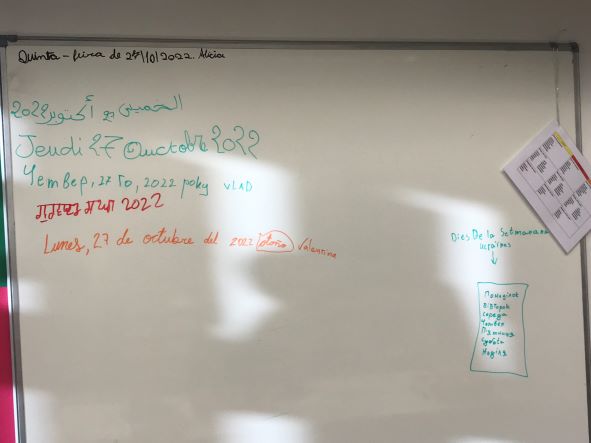 Quinta - feira de 27/10/2022. Alicia
الخميس 27 أكتوبر 2022
Jeudi 27 Ouctobre 2022
Четвер, 27 го, 2022 року VLAD
2022
Lunes, 27 de octubre del 2022 otoño Valentina
Dies De la Setmanana
ucraïnes
Понеділок
Вівторок
Середа
Четвер
П'ятниця
Субота
Неділя